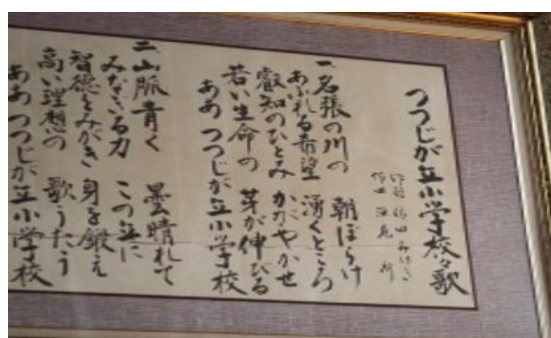 つつじが丘小学校々歌
一、名張の川の 朝ぼらけ
あふれる希望 湧くところ
叡知のひとみ かがやかせ
若い生命の 芽が伸びる
ああ つつじが丘小学校
二、山脈青く 雲晴れて
みなぎる力 この丘に
智徳をみがき 身を鍛え
高い理想の 歌うたう
ああ つつじが丘小学校